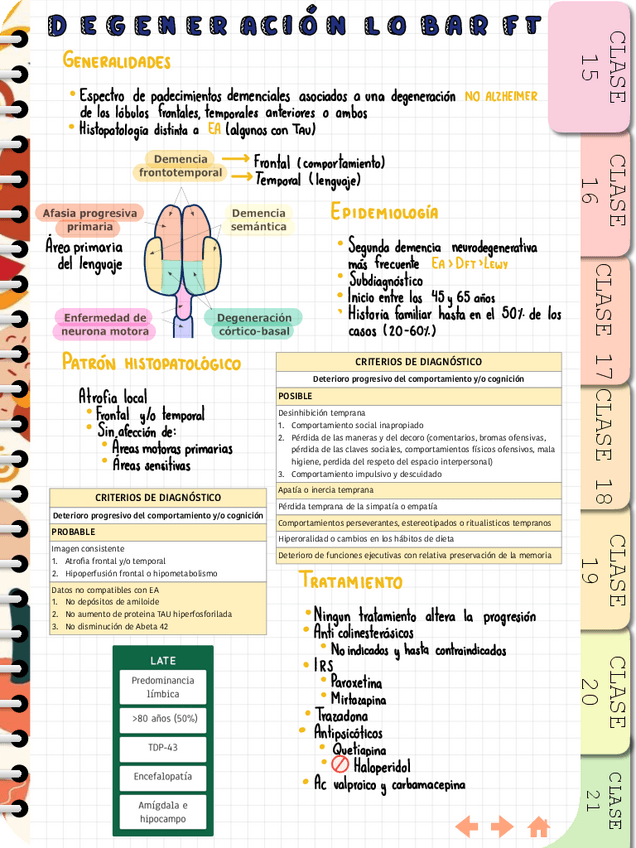 DEGENERACIÓN LOBAR FT
GENERALIDADES
• Espectro de padecimientos demenciales asociados a una degeneración NO ALZHEIMER
de los lóbulos frontales, temporales anteriores o ambos
• Histopatología distinta a EA (algunos con TAU)
Demencia
frontotemporal
Frontal (comportamiento)
Temporal (lenguaje)
Afasia progresiva
primaria
Demencia
semántica
Área primaria
del lenguaje
Enfermedad de
neurona motora
Degeneración
córtico-basal
EPIDEMIOLOGÍA
• Segunda demencia neurodegenerativa
más frecuente EA>DFT>LEWY
• Subdiagnóstico
• Inicio entre los 45 y 65 años
• Historia familiar hasta en el 50% de los
casos (20-60%)
PATRÓN HISTOPATOLÓGICO
Atrofia local
• Frontal y/o temporal
• Sin afección de:
• Áreas motoras primarias
• Áreas sensitivas
CRITERIOS DE DIAGNÓSTICO
Deterioro progresivo del comportamiento y/o cognición
POSIBLE
Desinhibición temprana
1. Comportamiento social inapropiado
2. Pérdida de las maneras y del decoro (comentarios, bromas ofensivas,
pérdida de las claves sociales, comportamientos físicos ofensivos, mala
higiene, perdida del respeto del espacio interpersonal)
3. Comportamiento impulsivo y descuidado
Apatía o inercia temprana
Pérdida temprana de la simpatía o empatía
Comportamientos perseverantes, estereotipados o ritualisticos tempranos
Hiperoralidad o cambios en los hábitos de dieta
Deterioro de funciones ejecutivas con relativa preservación de la memoria
CRITERIOS DE DIAGNÓSTICO
Deterioro progresivo del comportamiento y/o cognición
PROBABLE
Imagen consistente
1. Atrofia frontal y/o temporal
2. Hipoperfusión frontal o hipometabolismo
Datos no compatibles con EA
1. No depósitos de amiloide
2. No aumento de proteina TAU hiperfosforilada
3. No disminución de Abeta 42
LATE
Predominancia
límbica
>80 años (50%)
TDP-43
Encefalopatía
Amígdala e
hipocampo
TRATAMIENTO
• Ningun tratamiento altera la progresión
• Anti colinesterásicos
• No indicados y hasta contraindicados
• IRS
• Paroxetina
• Mirtazapina
• Trazadona
• Antipsicóticos
• Quetiapina
• Haloperidol
• Ac valproico y carbamacepina
CLASE
15
CLASE
16
CLASE 17
CLASE 18
CLASE
19
CLASE
20
CLASE
21